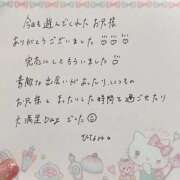 今日も遊んでくれたお兄様
ありがとうございました
完売にしてもらいました
素敵な出会いがあったり、いつもの
お兄様とあたたかい時間を過ごせたり
大満足Dayだった